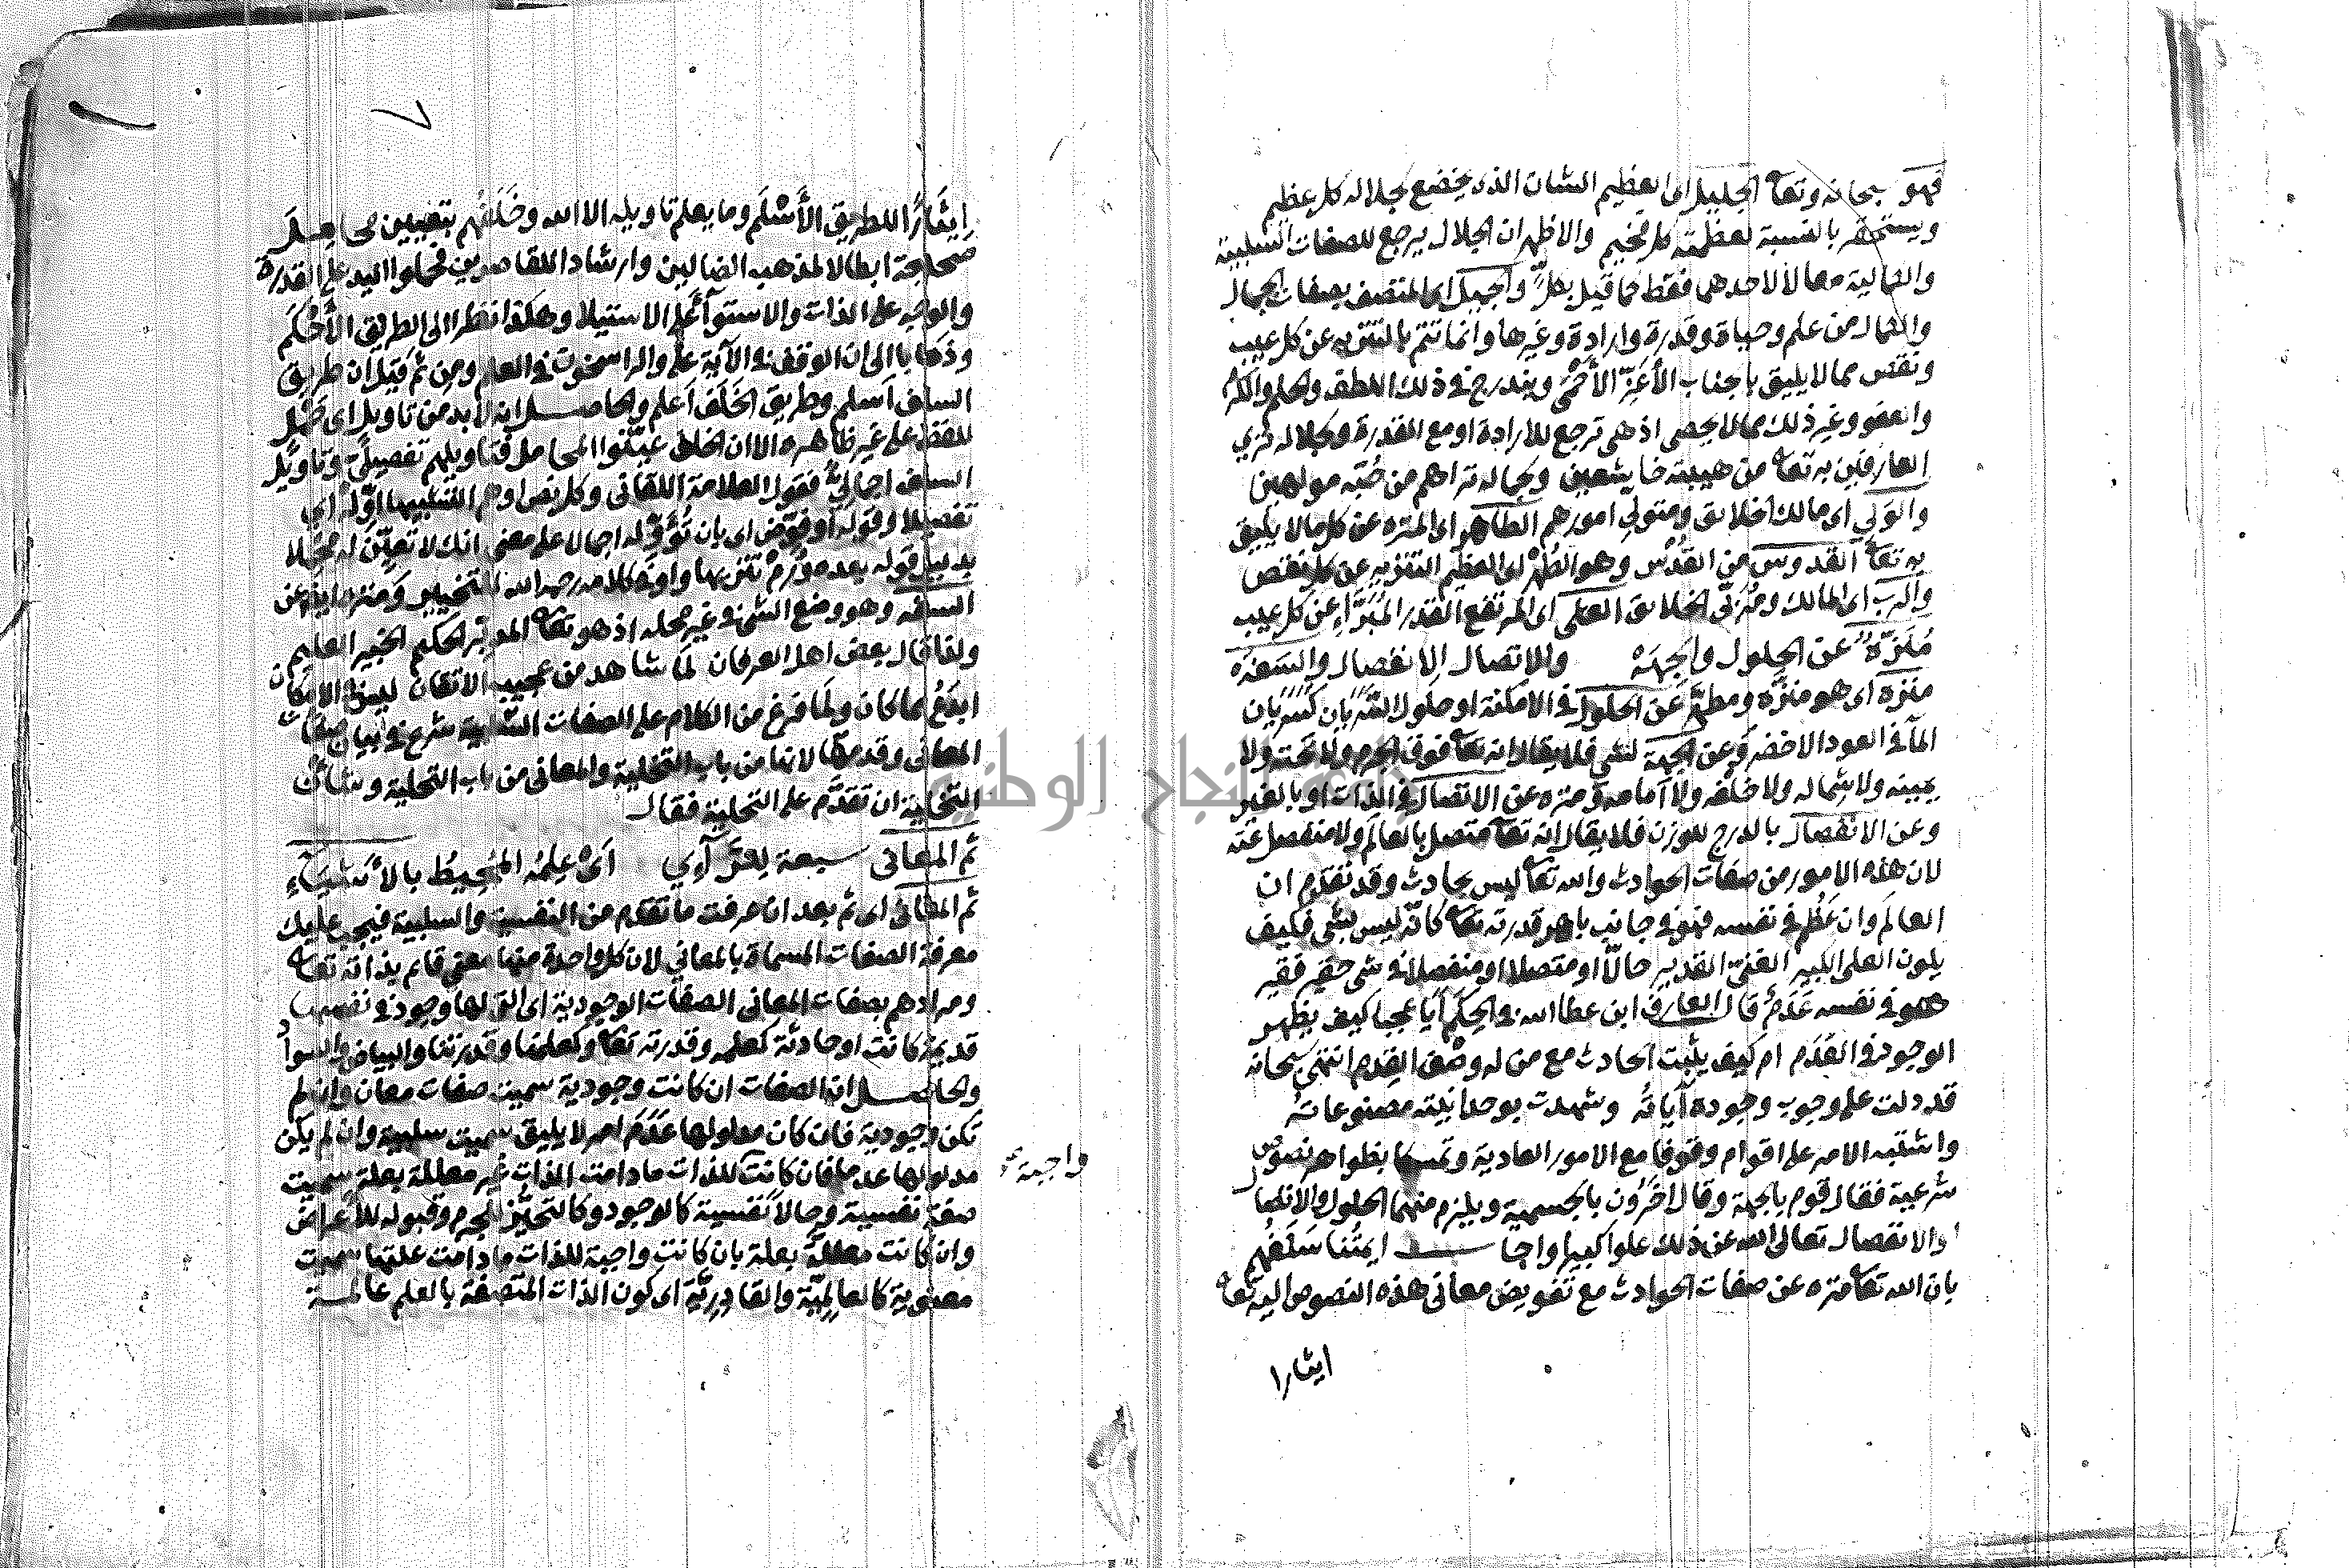 فهو سبحانه وتعا الجليل اى العظيم الشان الذى يخضع لجلاله كل عظيم
ويستحقر بالنسبة لعظمته كل فخيم والاظهر ان الجلال يرجع للصفات السلبية
والكمالية معا لا لاحدهما فقط كما قيل بكلٍّ والجميل اى المتصف بصفات الجمال
والكمال من علم وحياة وقدرة وارادة وغيرها وانما تتم بالتنزيه عن كل عيب
ونقص مما لا يليق بالجناب الأعَزّ الأحْمَى ويندرج فى ذلك اللطف والحلم والكرم
والعفو وغير ذلك مما لا يحصى اذ هى ترجع للارادة او مع القدرة ولجلاله ترى
العارفين به تعا من هيبته خاشعين ولجماله تراهم من حُبّه مولهين
والوَلي اى مالك الخلائق ومتولي امورهم الطاهر اى المنزه عن كل ما لا يليق
به تعا القدوس من القُدْس وهو الطُهْر اى العظيم التنزيه عن كل نقص
والرب اى المالك ومُرَبّى الخلائق العلى اى المرتفع القدر المُبَرَّاء عن كل عيب
مُنَزَّهٌ عن الحلول والجِهَهْ والاتصال الانفصال والسَفَهْ
منزه اى هو منزّه ومطهّر عن الحلول فى الامكنة او حلول السَّرَيَان كسَرَيَان
المآ فى العود الاخضر وَعن الجهة لشى فلا يقال انه تعا فوق الجرم ولا تحته ولا
يمينه ولا شماله ولا خلفه ولا آمامه ومنزه عن الاتصال فى الذات او بالغير
وعن الانفصال بالدرج للوزن فلا يقال انه تعا متصل بالعالَم ولا منفصل عنه
لان هذه الامور من صفات الحوادث والله تعا ليس بحادث وقد تقدم ان
العالَم وان عَظُم فى نفسه فهو فى جانب باهر قدرته تعا كانّه ليس بشى فكيف
يكون العلى الكبير الغنىّ القدير حالّا او متصلا او منفصلا فى شى حقير فقير
هو فى نفسه عَدَمٌ قال العارف ابن عطا الله فى الحِكَم آيا عجبا كيف يظهر
الوجود فى العَدَم ام كيف يثبت الحادث مع من له وصْف القِدم انتهى سبحانه
قد دلت على وجوب وجوده آياتُه وشهدت بوحدانيته مصنوعاتُهُ
واشتبه الامر على اقوام وقوفا مع الامور العادية وتمسكا بظواهر نصوص
شرعية فقال قوم بالجهة وقال اخَرون بالجسمية ويلزم منهما الحلول والاتصال
والانفصال تعالى الله عن ذلك علوا كبيرا واجاب ايمتُنا سَلَفُهم
بان الله تعا منزه عن صفات الحوادث مع تفويض معانى هذه النصوص اليه تعا
ايثارا
٧
إيثارًا للطريق الأسْلَم وما يعلم تاويله الا الله وخَلَفُهم بتعيين محامل
صحيحة ابطالا لمذهب الضالين وارشادا للقاصرين فحملوا اليد على القدرة
والوجه على الذات والاستوآ على الاستيلا وهكذا نظرا الى الطريق الأحْكَم
وذَهابا الى ان الوقف فى الآية على والراسخون فى العلم ومن ثَم قيل ان طريق
السلف اَسلم وطريق الخَلَف اَعلم والحاصل انه لابد من تاويل اى حَمْل
اللفظ على غير ظاهره الا ان الخلف عيّنوا المحامل فتاويلهم تفصيليٌ وتاويل
السلف اجماليٌ فقول العلامة اللقانى وكل نص اوهم التشبيها اوّله اى
تفصيلا وقوله أو فوّض اى بان تُؤوّله اجمالا على معنى انك لا تعيّن له محملا
بدليل قوله بعده ورُمْ تنزيها واو فى كلامه رحمه الله للتخيير ومنزه ايضا عن
السفه وهو وضع الشى فى غير محله اذ هو تعا المدبر الحكيم الخبير العليم
ولقد قال بعض اهل العرفان لمّا شاهد من عجيب الاتقان ليس فى الامكان
ابدَعُ مما كان ولَما فرغ من الكلام على الصفات السلبية شرع فى بيان صفات
المعانى وقدمها لانها من باب التخلية والمعانى من باب التحلية وشان
التخلية ان تقدَّم على التحلية فقال
ثم المعانى سبعة لِلرَّآءِي اَىْ عِلمُه المُحِيطُ بالأشيَآءِ
ثم المعانى اى ثم بعد ان عرفت ما تقدم من النفسية والسلبية فيجب عليك
معرفة الصفات المسماة بالمعاني لان كل واحدة منها معنى قايم بذاته تعا
ومرادهم بصفات المعانى الصفات الوجودية اى التى لها وجود فى نفسها
قديمة كانت او حادثة كعلمه وقدرته تعا وكعلمنا وقدرتنا والبياض والسواد
والحاصل ان الصفات ان كانت وجودية سميت صفات معان وان لم
تكن وجودية فان كان مدلولها عَدَم امر لا يليق سميت سلبية وان لم يكن
مدلولها عدما فان كانت للذات ما دامت الذات غير معللة بعلة سميت
واجبة
صفة نفسية وحالا نفسية كالوجود وكالتحيّز للجرم وقبوله للأعراض
وان كانت معللة بعلة بان كانت واجبة للذات ما دامت علتها سميت
معنوية كالعالِميّة والقادِريّة اى كون الذات المتصفة بالعلم عالمة
جامعة النجاح الوطنية